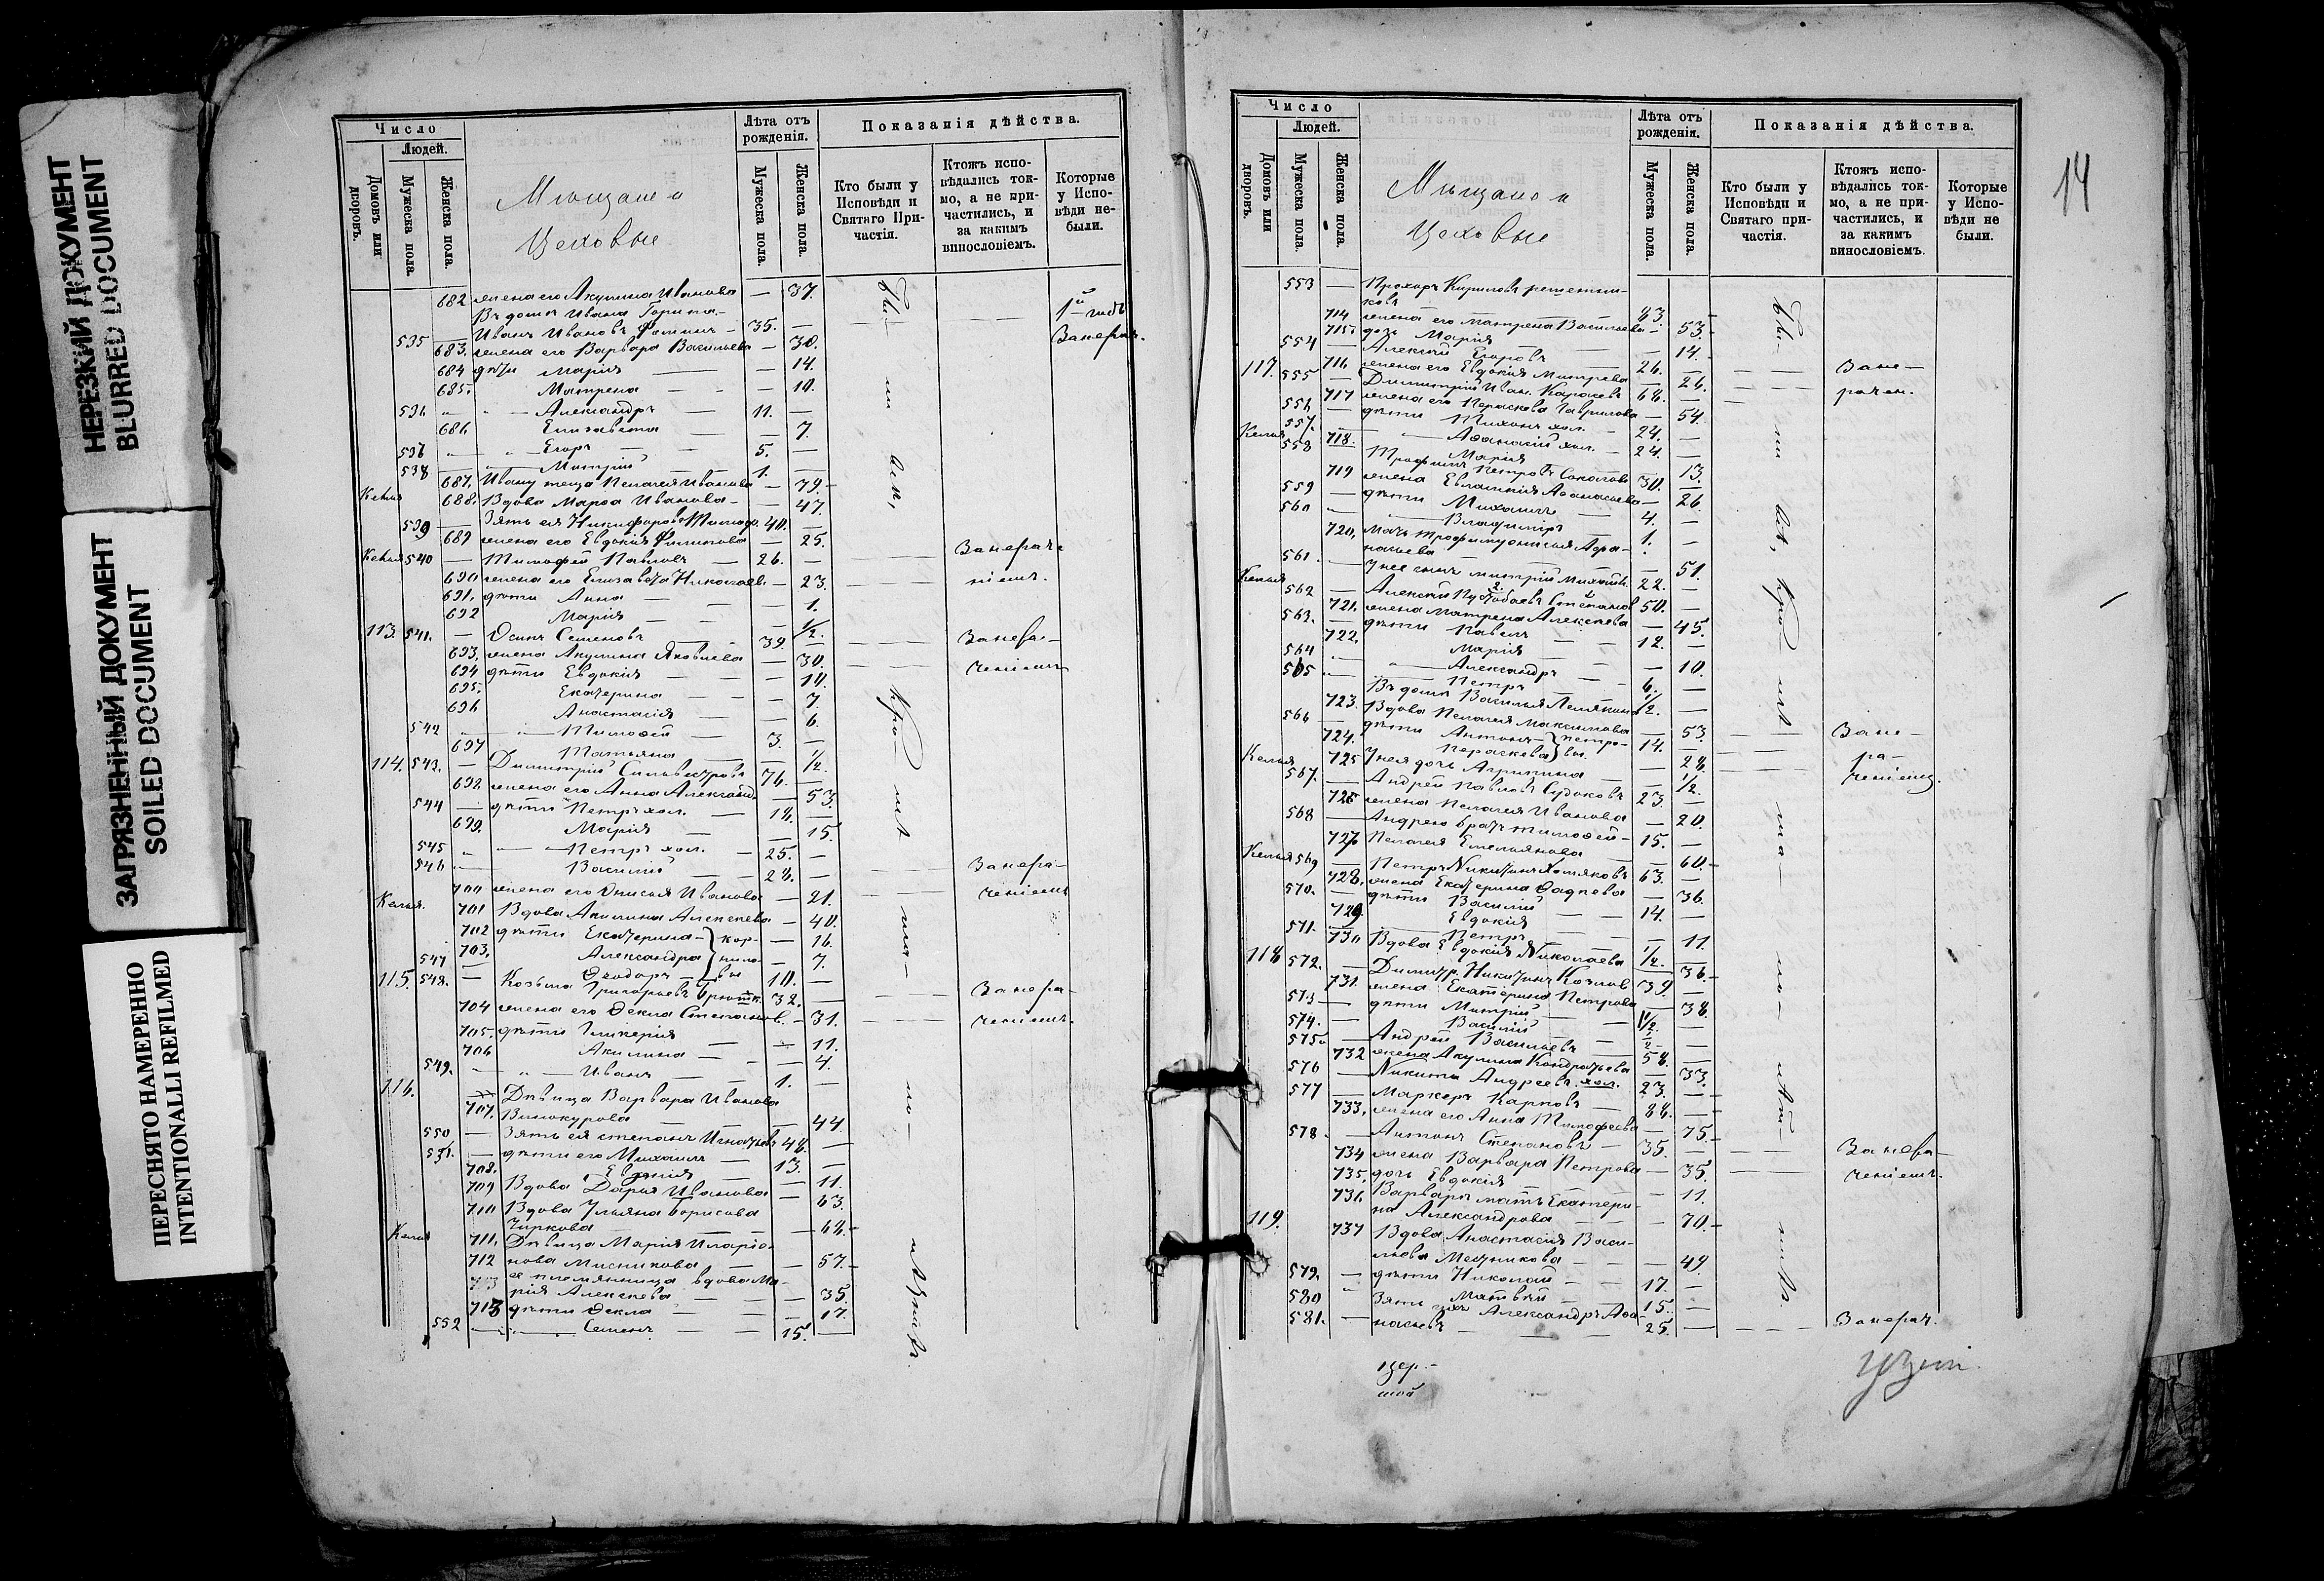 НЕРЕЗКИЙ ДОКУМЕНТ
BLURRED DOCUMENT
ЗАГРЯЗНЕННЫЙ ДОКУМЕНТ
SOILED DOCUMENT
ПЕРЕСНЯТО НАМЕРЕННО
INTENTIONALLI REFILMED
Число
Людей.
Домовъ или дворовъ.
Мужеска пола.
Женска пола.
Мѣщане и
Цеховые
Лѣта отъ рожденія.
Мужеска пола.
Женска пола.
Показанія дѣйства.
Кто были у Исповѣди и Святаго Причастія.
Ктожъ исповѣдались токмо, а не причастились, и за какимъ винословіемъ.
Которые у Исповѣди не были.
682 жена его Акулина Иванова — 37.
Въ домѣ Ивана
535 — Иванъ Ивановъ — 35. —
683. жена его Варвара Васильева — 30.
684 дѣти Марія — 14.
685. Матрена — 10.
536 Александръ — 11. —
686 Елизавета — 7.
Егоръ — 5. —
538 Митрій 1. —
687. Ивану теща Пелагея Иванова — 79.
Келья 688. Вдова Марѳа Иванова — 47.
539 — Зять ея 40. —
689 жена его Евдокія Филипова — 25.
Келья 540 — Тимофей Павловъ — 26. —
690 жена его Елизавета Николаев. — 23.
691. дѣти Анна — 1.
692 Марія — 1/2.
113. 541. — Осипъ Семеновъ 39. —
693. жена Акулина Яковлева — 30.
694 дѣти Евдокія — 10.
695. Екатерина — 7.
696 Анастасія — 6.
542 Тимоѳей — 3. —
697 Татьяна — 1/2.
114. 543. — Димитрій 76. —
698 жена его Анна Александ. — 53.
544 — дѣти Петръ хол. — 18. —
699. Марія — 15.
545 Петръ хол. — 25. —
546 — Василій — 28. —
700 жена его Онисья Иванова — 21.
Келья. 701 Вдова Акилина Алексѣева — 40.
702 дѣти Екатерина — 16.
703. Александра — 7.
547 — Ѳеодоръ 10. —
115. 548. — Козьма Григорьевъ 32. —
704 жена его Ѳекла Степанов. — 31.
705. дѣти Гликерія — 11.
706 Акилина — 4.
549. Иванъ — 1. —
116. 707. Дѣвица Варвара Иванова
Винокурова — 44.
550 — Зять ея Степанъ Игнатьевъ 48. —
551. — дѣти его Михаилъ — 13. —
708. — 11.
709 Вдова Дарья Иванова — 63.
710 Вдова Ульяна Борисова
Чиркова — 68.
Келья 711. Дѣвица Марія Иларіо-
712 нова Мисникова — 57.
ее племянница вдова Ма-
рія Алексѣева — 35.
713 дѣти Ѳекла — 17.
552 Семенъ — 15. —
Бы — ли вси, кро — мѣ ма — ло — лѣтнихъ.
Занераче-
ніемъ.
Занера-
ченіемъ
Занера-
ченіемъ
Занера-
ченіемъ.
14
Число
Людей.
Домовъ или дворовъ.
Мужеска пола.
Женска пола.
Мѣщане и
Цеховые
Лѣта отъ рожденія.
Мужеска пола.
Женска пола.
Показанія дѣйства.
Кто были у Исповѣди и Святаго причастія.
Ктожъ исповѣдались токмо, а не причастились, и за какимъ винословіемъ.
Которые у Исповѣди не были.
553 — Прохоръ Кириловъ Решетни-
ковъ 63. —
714 жена его Матрена Васильева — 53.
715 дочь Марія — 14.
554 — Алексѣй Егоровъ 26. —
117. 716 жена его Евдокія Митрева — 26.
555 — Димитрій Иван. 68. —
717 жена его Параскева Гаврилова — 54.
556 — дѣти Тихонъ хол. — 24. —
557. Аѳанасій хол. — 24. —
Келья 718. Марія — 13.
558 Трофимъ Петровъ Соколовъ 30. —
719 жена Евлампія Аѳанасьева — 26.
559 — дѣти Михаилъ — 4. —
560 — Владиміръ — 1. —
720. Мать Трофиму Онисья Афа-
насьева — 51.
561. — У нее сынъ Митрій Михайл. 22. —
Келья 562 — Алексѣй Степанов 50. —
721. жена Матрена Алексѣева — 45.
563. — дѣти Павелъ — 12. —
722. Марія — 10.
564 Александръ — 6. —
565 Петръ — 1/2. —
Въ домѣ Василья
723. Вдова Пелагея Максимова — 53.
566 — дѣти Антонъ 14. —
724. Параскева — 28.
Келья 725 У нея дочь Агрипина — 1/2.
567. — Андрей Павловъ Судоковъ 23. —
726 жена Пелагея Иванова — 20.
568 — Андрею братъ Тимоѳей — 15. —
727 Пелагея Емельянова — 60.
Келья 569 — Петръ Никитинъ Хомяковъ 63. —
728. жена Екатерина Фадѣева — 36.
570. — дѣти Василій — 14. —
729. Евдокія — 11.
571. — Петръ — 1/2. —
730 Вдова Евдокія Николаева — 36.
118 572. — Димитр. Никитинъ Козлов 39. —
731. жена Екатерина Петрова — 38.
573 — дѣти Митрій —
574. — Василій —
575. — Андрей Васильевъ 58. —
732 жена Акулина Кондратьева — 33.
576 — Никита Андреевъ хол. 23. —
577 — Маркеръ Карповъ 88. —
733. жена его Анна Тимофеева — 75.
578. — Антонъ Степановъ — 35. —
734 жена Варвара Петрова — 35.
735. дочь Евдокія — 11.
736. Варвары мать Екатери-
на Александрова — 70.
119. 737 Вдова Анастасія Васи-
льева — 49.
579. — дѣти Николай — 17. —
580 Матвѣй — 15. —
581. — Зять ихъ Александръ Аѳа
насьевъ — 25. —
Бы — ли всѣ, кро — мѣ ма — ло — лѣт — нихъ.
Зане —
рачен.
Зане —
ра —
ченіемъ.
Занера-
ченіемъ.
Занерач.